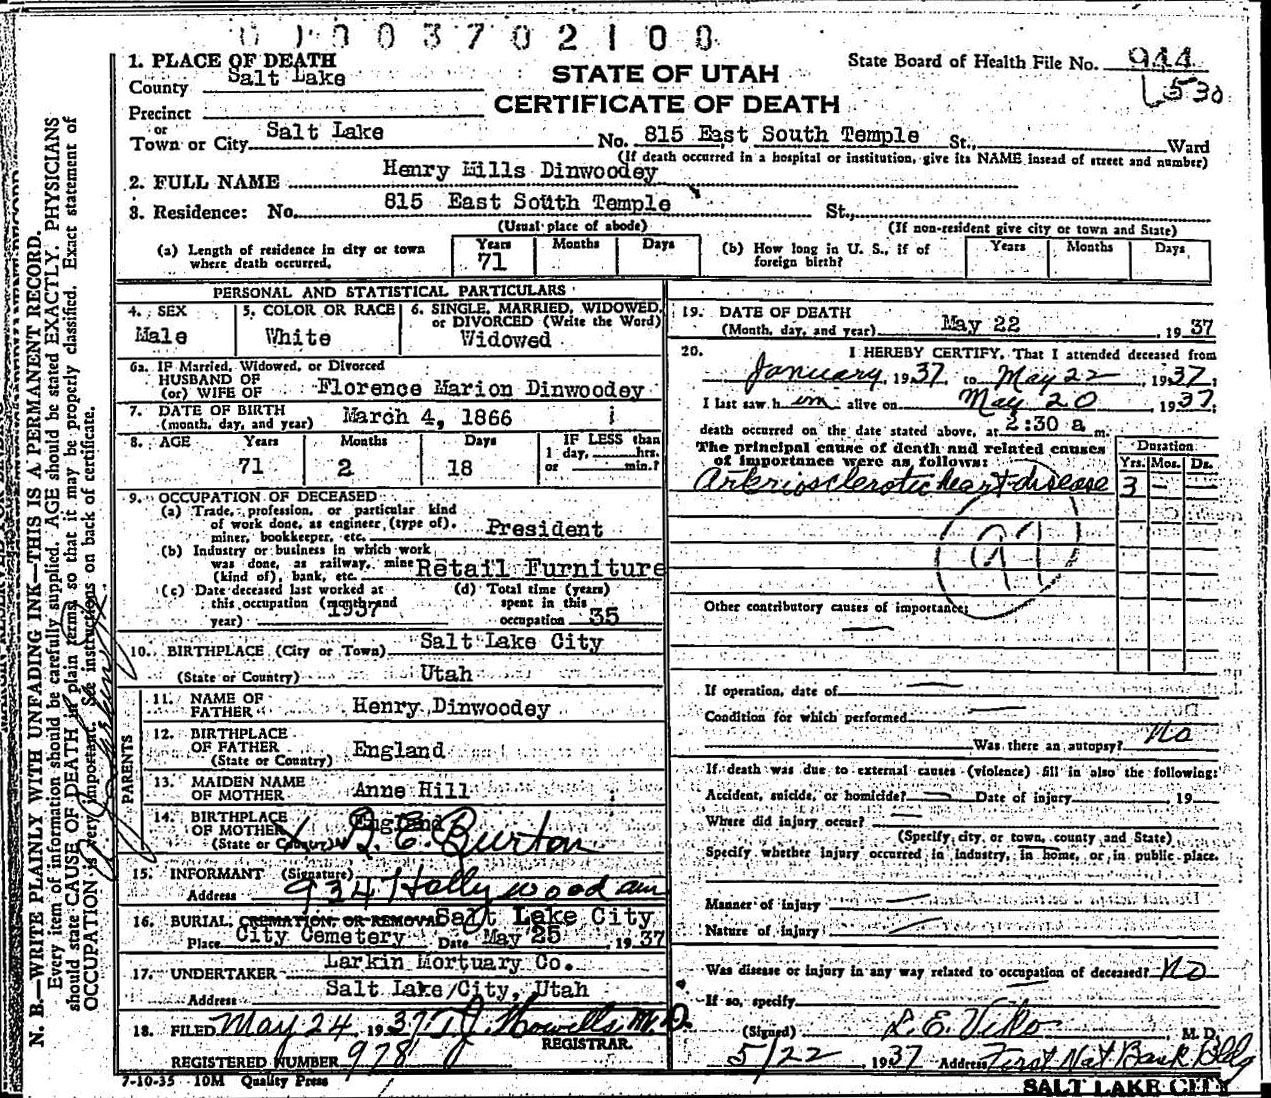 0 1 0 0 3 7 0 2 1 0 0
1. PLACE OF DEATH
County Salt Lake
STATE OF UTAH
CERTIFICATE OF DEATH
State Board of Health File No. 944
530
Precinct
or
Town or City Salt Lake No. 815 East South Temple St., Ward
(If death occurred in a hospital or institution, give its NAME insead of street and number)
2. FULL NAME Henry Hills Dinwoodey
3. Residence: No. 815 East South Temple St.,
(Usual place of abode) (If non-resident give city or town and State)
(a) Length of residence in city or town where death occurred. Years 71 Months Days
(b) How long in U. S., if of foreign birth? Years Months Days
PERSONAL AND STATISTICAL PARTICULARS
4. SEX Male
5. COLOR OR RACE White
6. SINGLE, MARRIED, WIDOWED, or DIVORCED (Write the Word) Widowed
6a. IF Married, Widowed, or Divorced
HUSBAND OF
(or) WIFE OF Florence Marion Dinwoodey
7. DATE OF BIRTH
(month, day, and year) March 4, 1866
8. AGE Years 71 Months 2 Days 18
IF LESS than
1 day, hrs.
or min.?
9. OCCUPATION OF DECEASED
(a) Trade, profession, or particular kind
of work done, as engineer, (type of).
miner, bookkeeper, etc. President
(b) Industry or business in which work
was done, as railway, mine
(kind of), bank, etc. Retail Furniture
(c) Date deceased last worked at
this occupation (month and
year) 1937
(d) Total time (years)
spent in this
occupation 35
10. BIRTHPLACE (City or Town) Salt Lake City
(State or Country) Utah
PARENTS
11. NAME OF
FATHER Henry Dinwoodey
12. BIRTHPLACE
OF FATHER
(State or Country) England
13. MAIDEN NAME
OF MOTHER Anne Hill
14. BIRTHPLACE
OF MOTHER
(State or Country) England
15. INFORMANT (Signature) X W. J. E. Burton
Address 934 Hollywood ave
16. BURIAL, CREMATION, OR REMOVAL Salt Lake City
Place City Cemetery Date May 25, 1937
17. UNDERTAKER Larkin Mortuary Co.
Address Salt Lake City, Utah
18. FILED May 24 1937 T. J. Howells M.D.
REGISTRAR.
REGISTERED NUMBER 978
7-10-35 10M Quality Press
19. DATE OF DEATH
(Month, day, and year) May 22, 1937
20. I HEREBY CERTIFY, That I attended deceased from
January, 1937, to May 22, 1937;
I last saw him alive on May 20, 1937;
death occurred on the date stated above, at 2:30 a m.
The principal cause of death and related causes
of importance were as follows:
Duration
Yrs. Mos. Ds.
Arteriosclerotic heart disease 3 — —
Other contributory causes of importance:
—
If operation, date of —
Condition for which performed —
Was there an autopsy? No
If death was due to external causes (violence) fill in also the following:
Accident, suicide, or homicide? — Date of injury, 19
Where did injury occur? —
(Specify city, or town, county and State)
Specify whether injury occurred in industry, in home, or in public place.
Manner of injury —
Nature of injury —
Was disease or injury in any way related to occupation of deceased? No
If so, specify
(Signed) L. E. Viko M. D.
5/22 1937 Address First Nat Bank Bldg
SALT LAKE CITY
N. B.—WRITE PLAINLY WITH UNFADING INK—THIS IS A PERMANENT RECORD.
Every item of information should be carefully supplied. AGE should be stated EXACTLY. PHYSICIANS
should state CAUSE OF DEATH in plain terms so that it may be properly classified. Exact statement of
OCCUPATION is very important. See instructions on back of certificate.